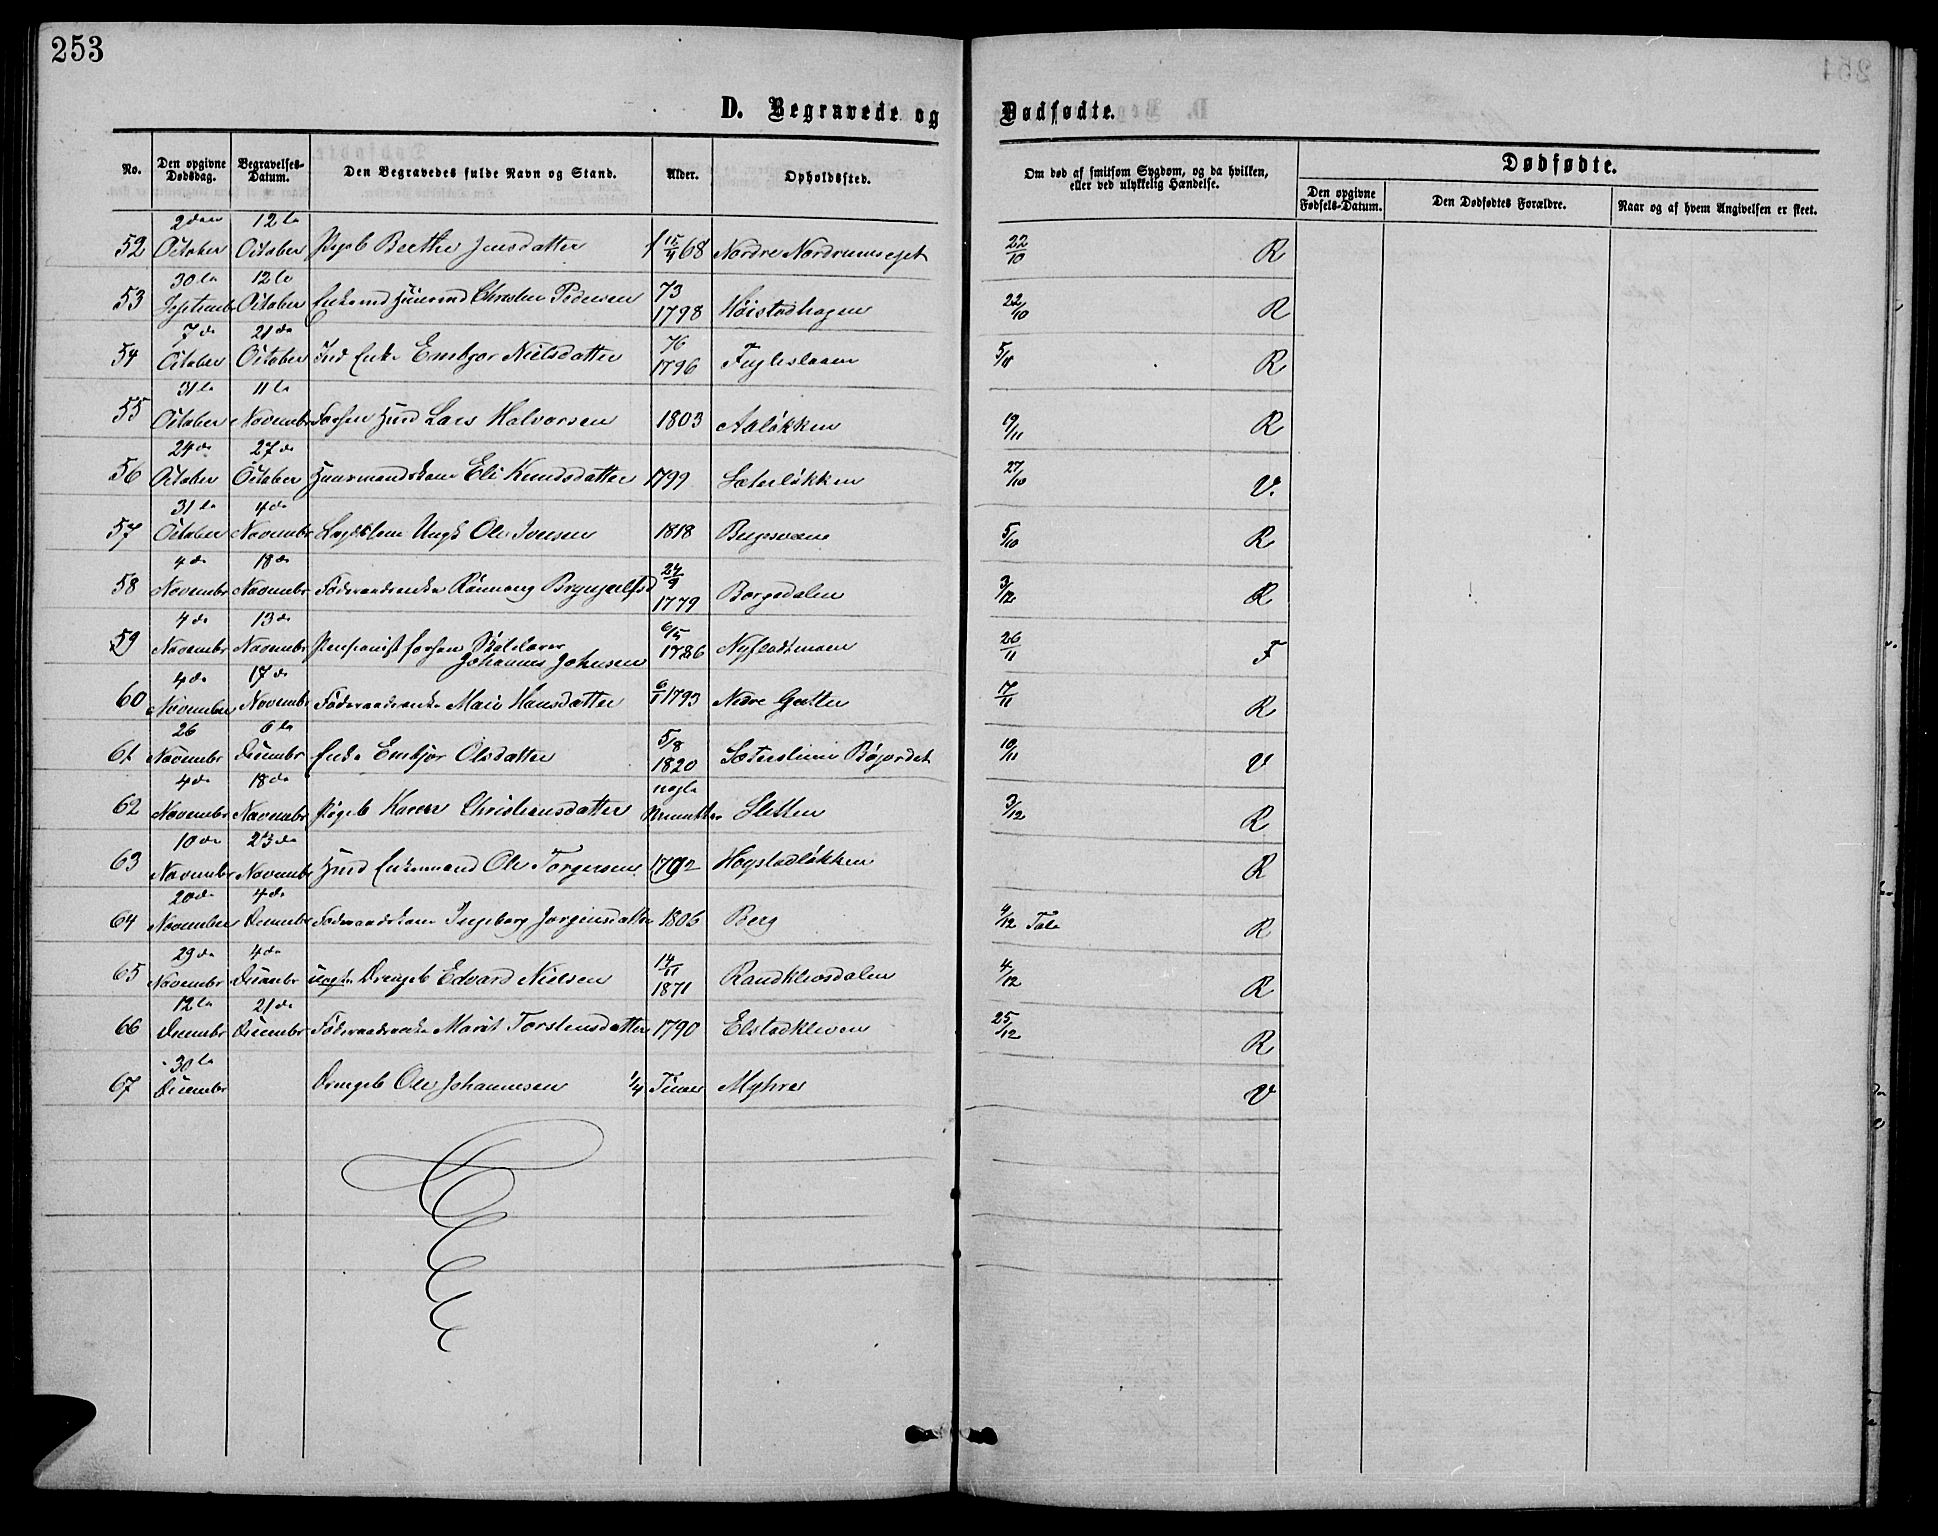 253
D. Begravede og Dødfødte.
No. Den opgivne Dødsdag. Begravelses-Datum. Den Begravedes fulde Navn og Stand. Alder. Opholdssted. Om død af smitsom Sygdom, og da hvilken, eller ved ulykkelig Hændelse. Dødfødte.
Den opgivne Fødsels-Datum. Den Dødfødtes Forældre. Naar og af hvem Angivelsen er skeet.
52 2den October 12te October Pigeb Berthe Jensdatter 15/4 68 Nordre 22/10 R
53 30te Septembr 12te October Enkemd Huusmd Christen Pedersen 73 1798 Høistadhagen 22/10 R
54 7de October 21de October Ind Enke Embjør Nielsdatter 76 1796 Fugleslaaen 5/11 R
55 31te October 11te Novembr Hmd Lars Halvorsen 1803 Aaløkken 19/11 R
56 24de October 27de October Huusmandskone Eli Knudsdatter 1799 Sæterløkken 27/10 V.
57 31te October 4de Novembr Lægdslem Ungk Ole Iversen 1818 5/10 R
58 4de Novembr 18de Novembr Føderaadsenke Rønnaug 24/9 1779 Borgedalen 3/12 R
59 4de Novembr 13de Novembr Pensionist Johannes Johnsen 6/5 1786 26/11 F
60 4de November 17de Novembr Føderaadsenke Mari Hansdatter 6/1 1793 Nedre 17/11 R
61 26 Novembr 6te Decembr Enke Embjør Olsdatter 5/8 1820 10/11 V
62 4de Novembr 18de Novembr Pigeb Karen Christiansdatter Sletten 3/12 R
63 10de Novembr 23de Novembr Hmd Enkemand Ole Torgersen 1792 Høystadløkken R
64 20de November 4de Decembr Føderaadskone Ingeborg Jørgensdatter 1806 Berg 4/12 Tale R
65 29de Novembr 4de Decembr uægte Drengeb Edvard Nielsen 14/11 1871 Randklevsdalen 4/12 R
66 12te Decembr 21de Decembr Føderaadsenke Marit Torstensdatter 1790 Elstadkleven 25/12 R
67 30te Decembr Drengeb Ole Johannesen 1/4 Time Myhre V